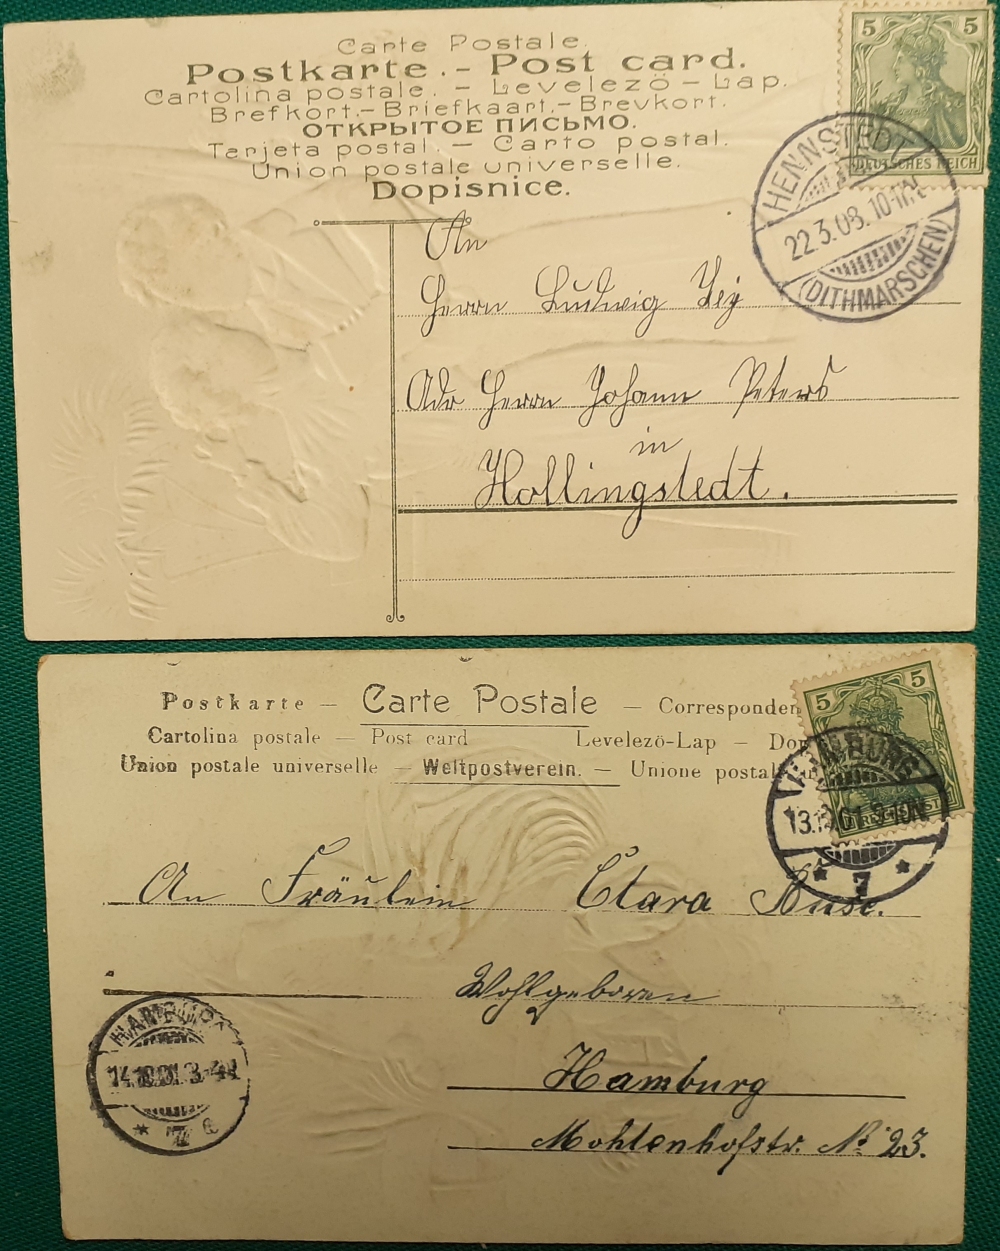 Carte Postale.
Postkarte. – Post card.
Cartolina postale. – Levelezö – Lap.
Brefkort. – Briefkaart. – Brevkort.
ОТКРЫТОЕ ПИСЬМО.
Tarjeta postal. – Carto postal.
Union postale universelle.
Dopisnice.
5 5
DEUTSCHES REICH
HENNSTEDT
22.3.08.10-11V
(DITHMARSCHEN)
An
Herrn Ludwig
Adr Herrn Johann Peters
in
Hollingstedt.
Postkarte – Carte Postale – Corresponden
Cartolina postale – Post card Levelezö-Lap – Dop
Union postale universelle – Weltpostverein. – Unione postal
5 5
HAMBURG
7
An Fräulein Clara
Wohlgeboren
HAMBURG
Hamburg
Mohlenhofstr. No 23.